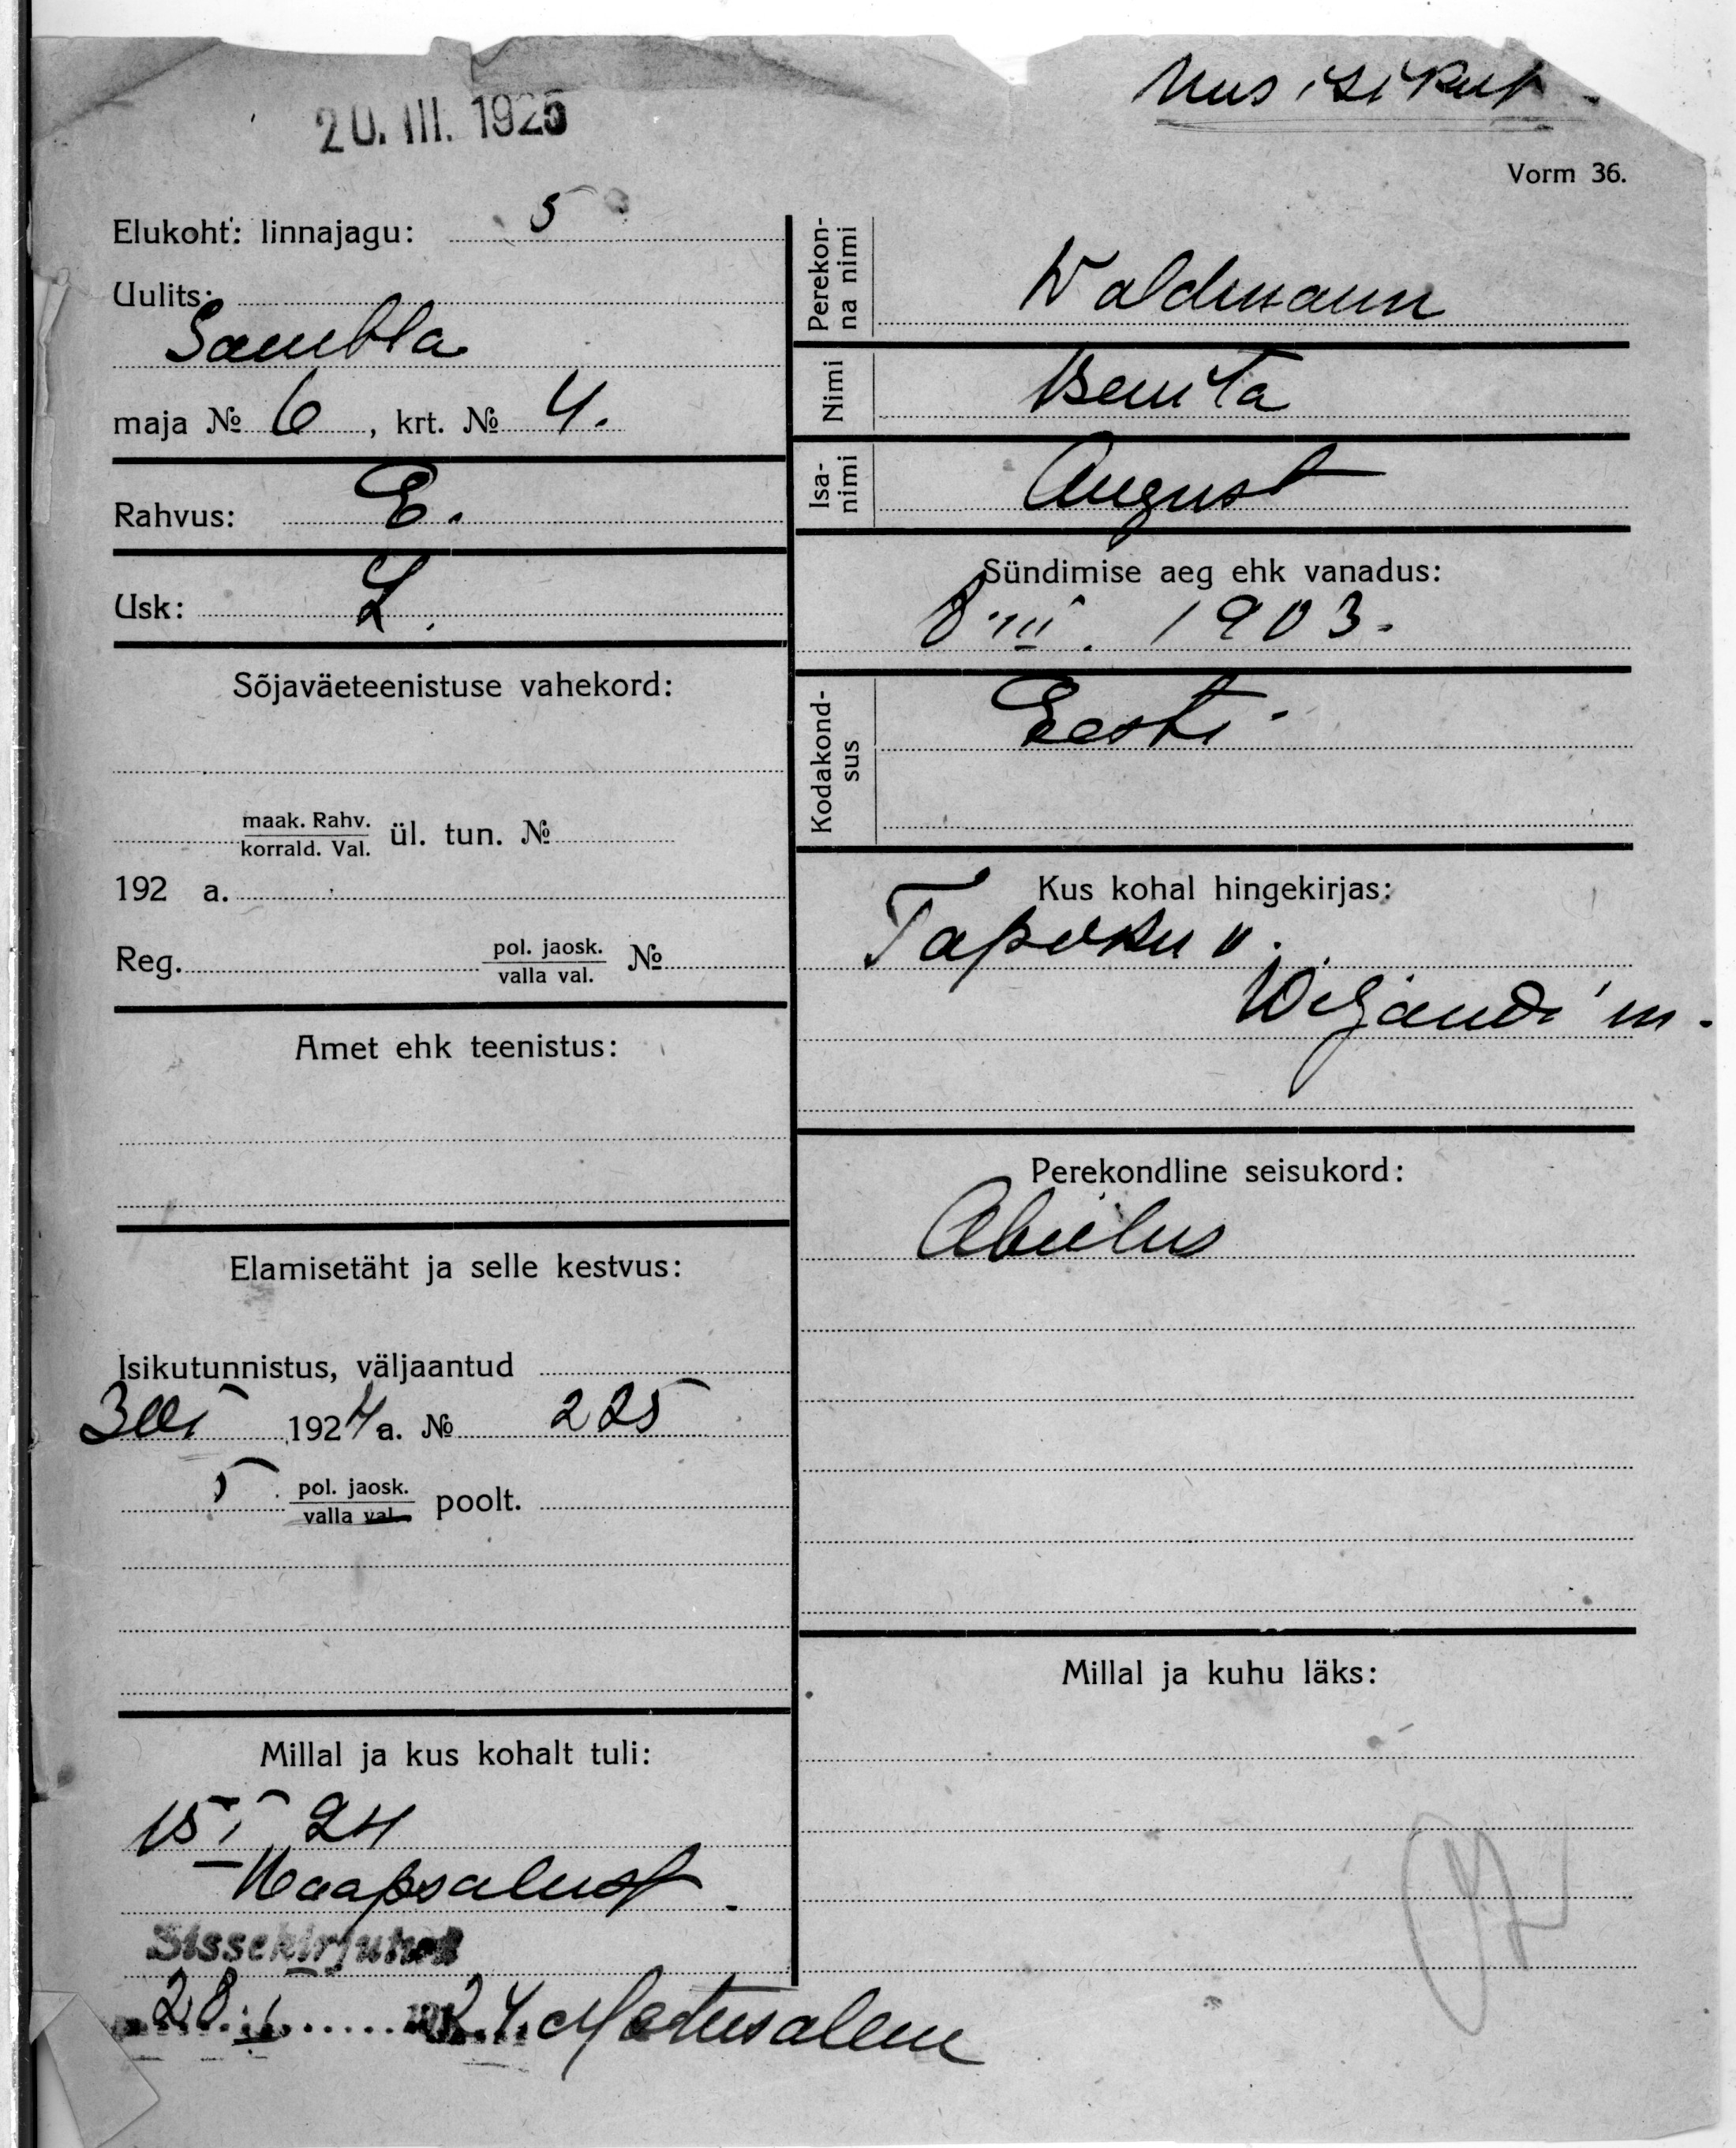 20. III. 1925
Uus isikut
Vorm 36.
Elukoht: linnajagu: 5
Uulits:
Sambla
maja № 6, krt. № 4.
Rahvus: E.
Usk: L.
Sõjaväeteenistuse vahekord:
maak. Rahv.
korrald. Val. ül. tun. №
192 a.
Reg. pol. jaosk.
valla val. №
Amet ehk teenistus:
Elamisetäht ja selle kestvus:
Isikutunnistus, väljaantud
1924 a. № 225
5 pol. jaosk.
valla val. poolt.
Millal ja kus kohalt tuli:
15 I 24
Haapsalust.
Sissekirjutud
28. I 1924. Metusalem
Perekon-
na nimi Waldmann
Nimi Benita
Isa-
nimi August
Sündimise aeg ehk vanadus:
8 III. 1903.
Kodakond-
sus Eesti
Kus kohal hingekirjas:
Tapiku v.
Wiljandi m.
Perekondline seisukord:
Abielus
Millal ja kuhu läks: